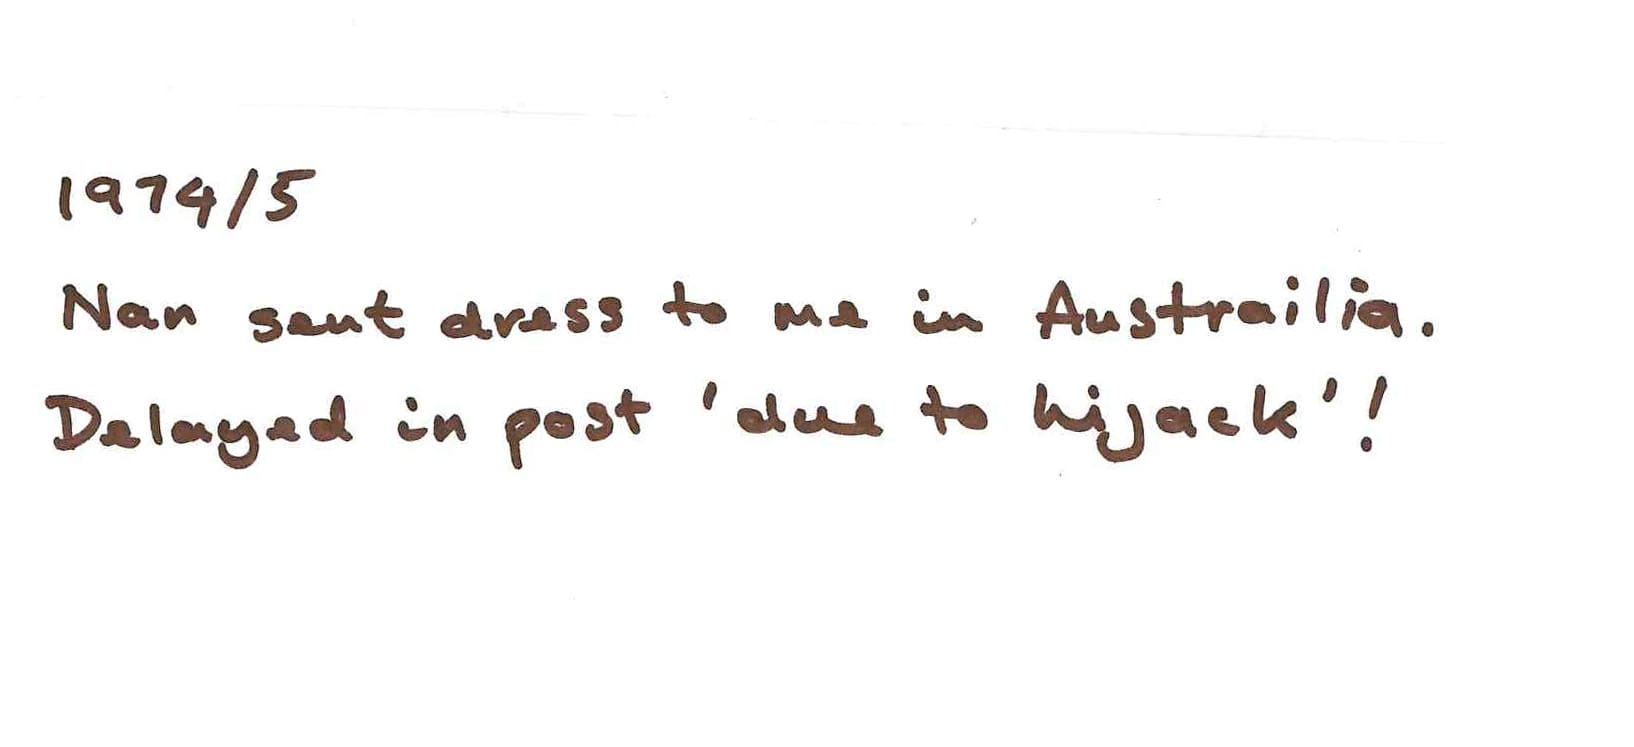 1974/5
Nan sent dress to me in Austrailia.
Delayed in post 'due to hijack'!